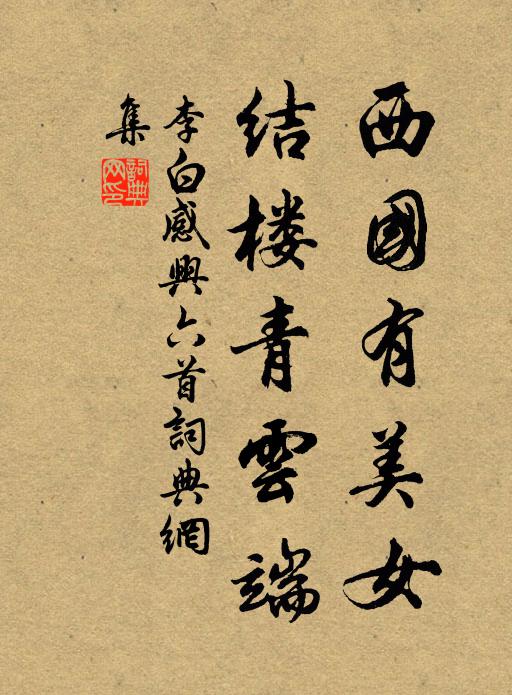 西國有美女
结楼青雲端
李白感興六首詞典網
集
詞典网印